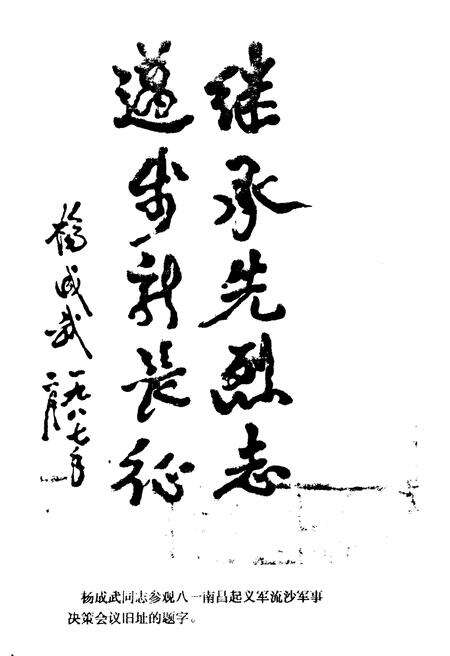 继承先烈志
迈步新长征
杨成武
一九八七年
六月
杨成武同志参观八一南昌起义军流沙军事
决策会议旧址的题字。